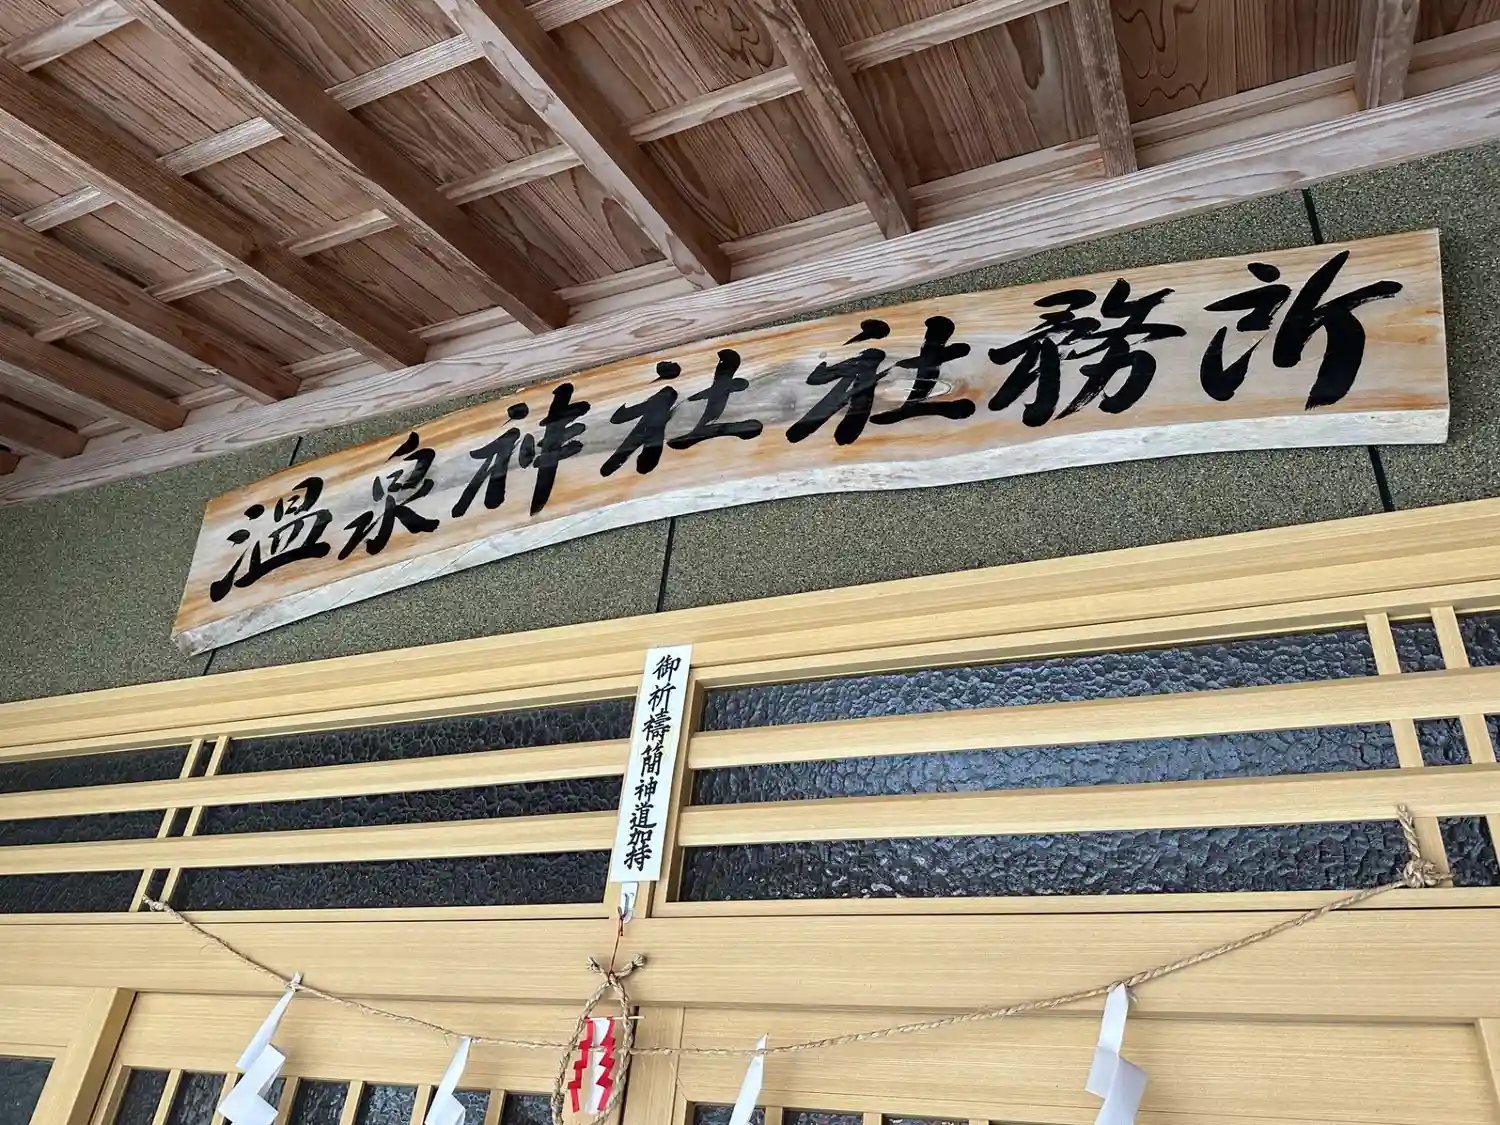 温泉神社社務所
御祈禱簡神道加持